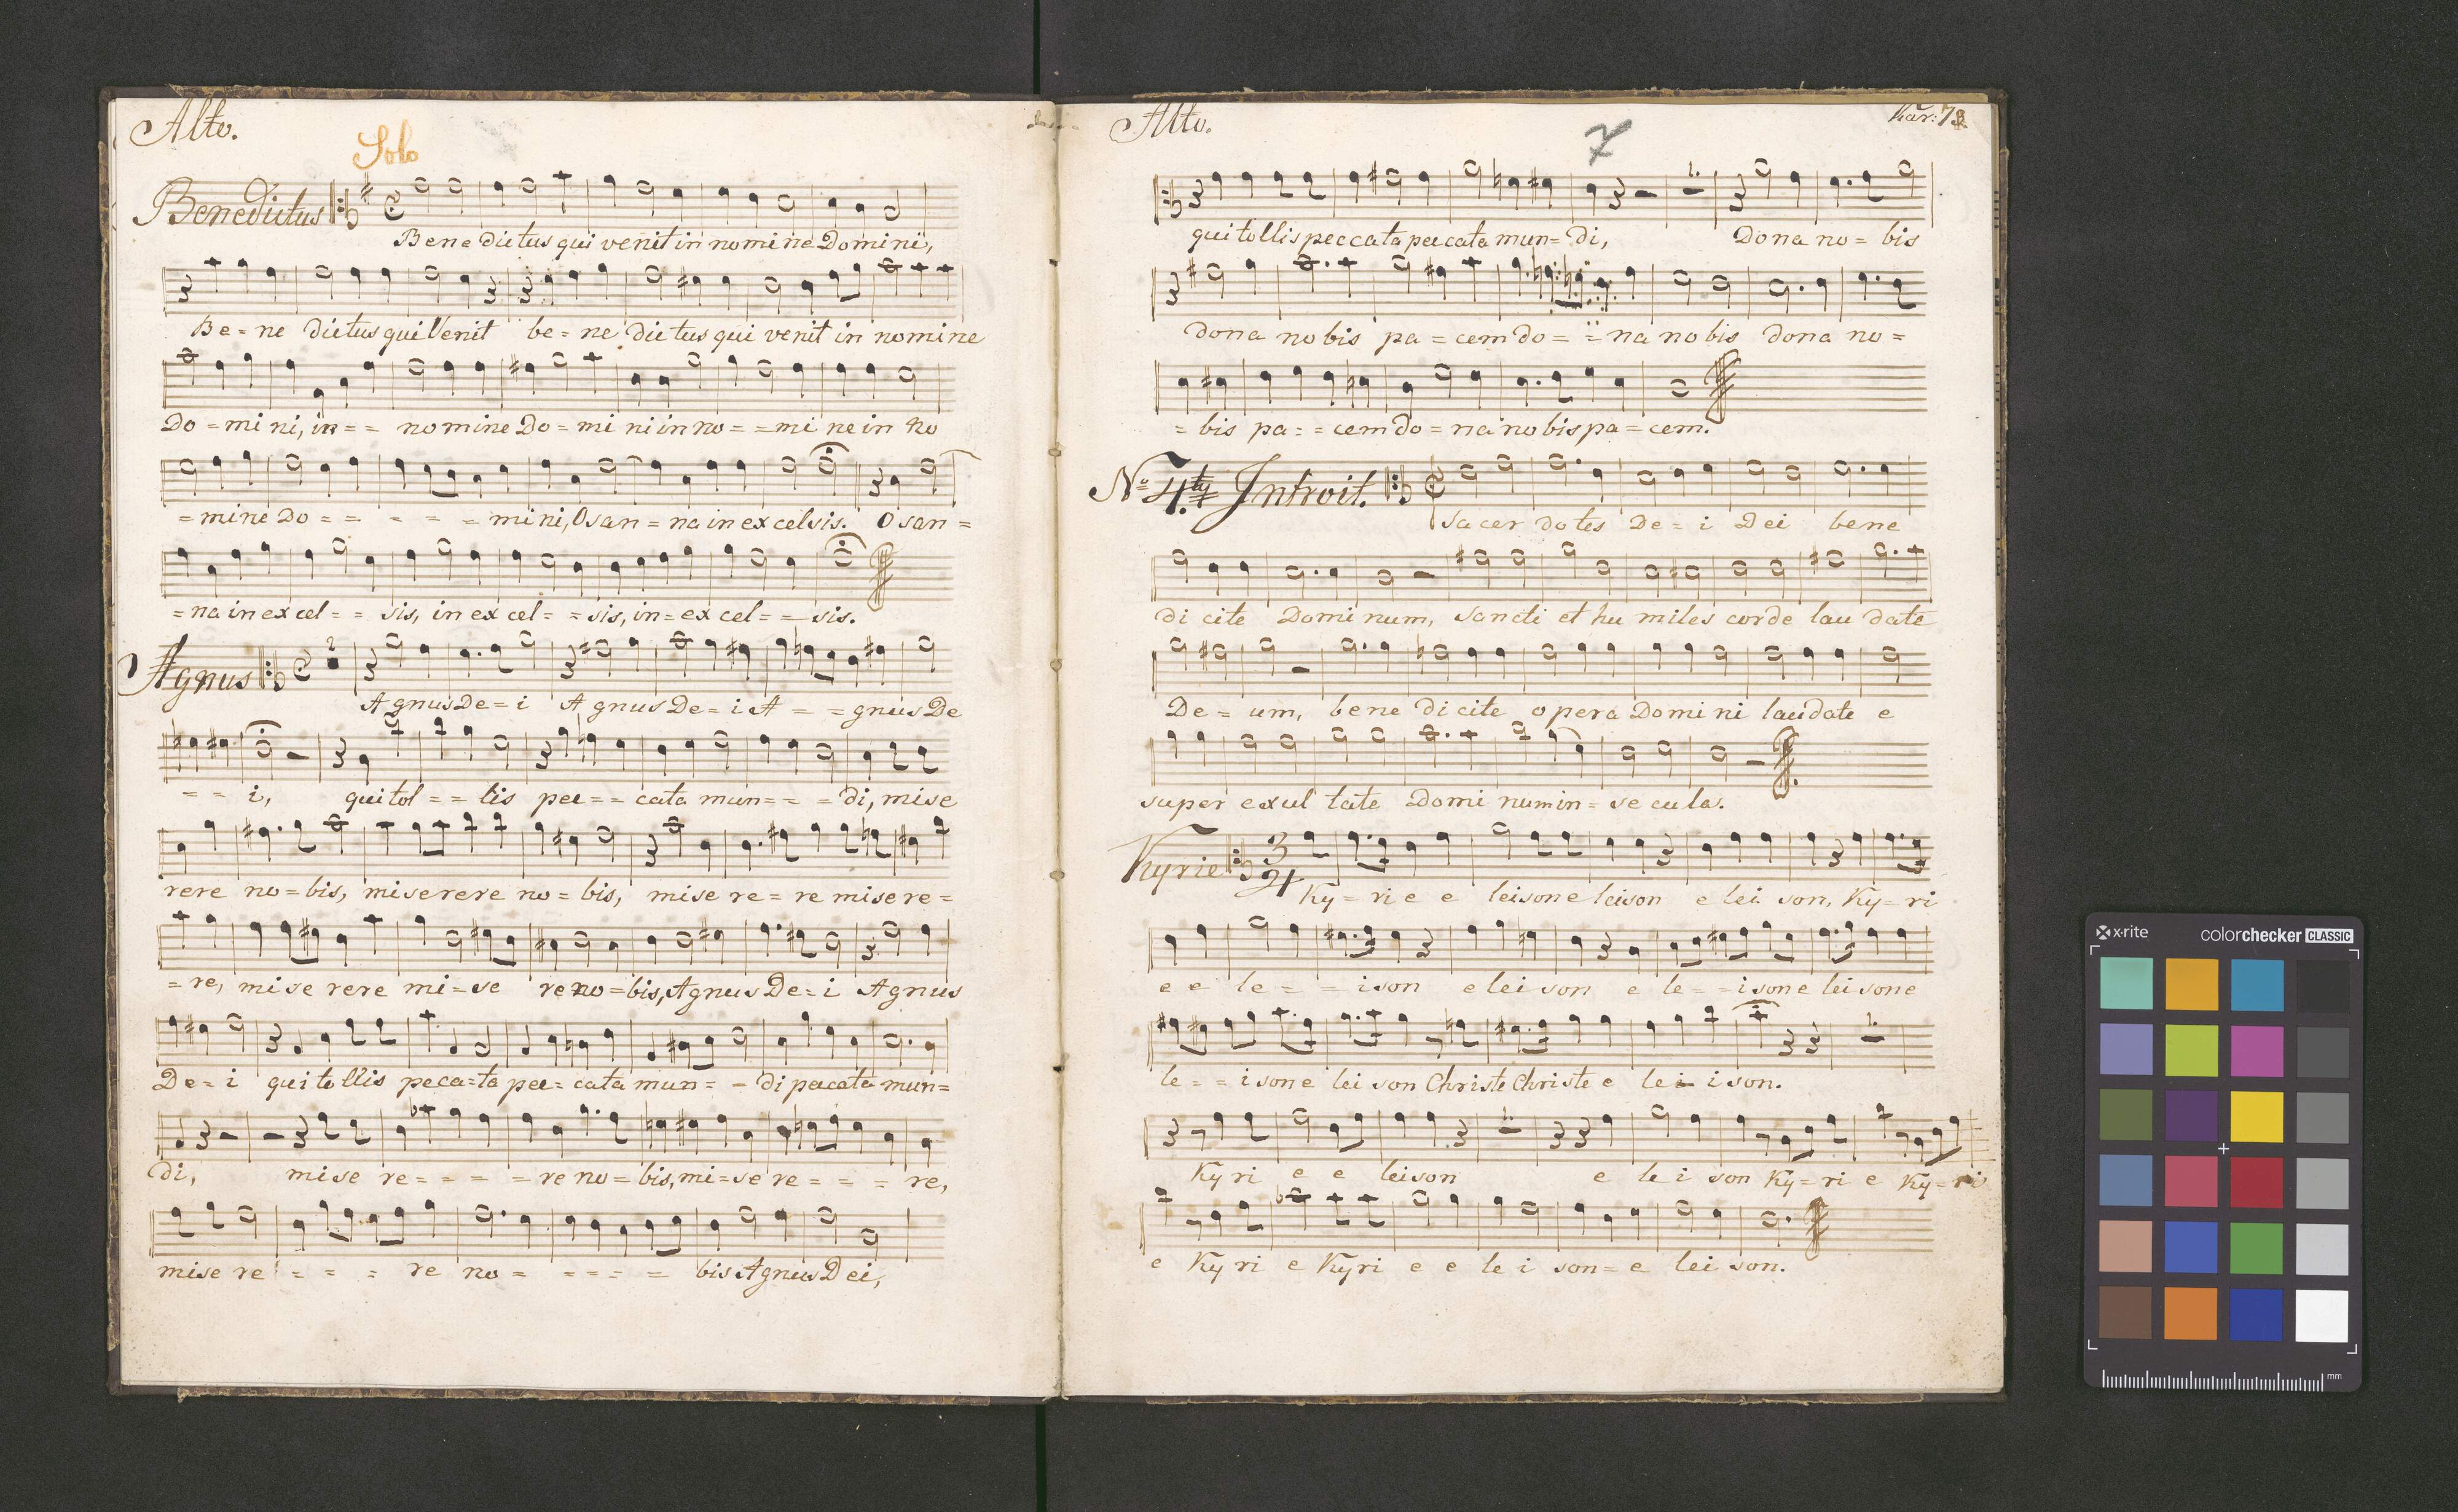 Alto.
Solo
Benedictus
Bene dictus qui venit in nomine Domini,
Be = ne dictus qui Venit be = ne dictus qui venit in nomine
Do = mi ni, in = = nomine Do = mi ni in no = = mi ne in No
= mine Do = = = = = mi ni, Osan = na in ex celsis. O san =
= na in ex cel = = sis, in ex cel = = sis, in = ex cel = = sis.
Agnus
2
A gnus De = i A gnus De = i A = = gnus De
= = i, qui tol = = lis pec = = cata mun = = = di, mise
rere no = bis, miserere no = bis, mise re = re mise re =
= re, mi se rere mi = se re no = bis, Agnus De = i Agnus
De = i qui to llis peca = ta pec = cata mun = = di pecata mun =
di, mise re = = = = re no = bis, mi = se re = = = re,
mise re = = = re no = = = = = bis Agnus Dei,
Alto.
7
qui tollis peccata peccata mun = di, Dona no = bis
dona no bis pa = cem do = = na no bis dona no =
= bis pa = = cem do = na no bis pa = cem.
No 4.ty Introit.
Sacer dotes De = i Dei bene
di cite Domi num, Sancti et hu miles corde lau date
De = um, bene di cite opera Domi ni laudate e
super exul tate Domi num in = se cula.
Kyrie
3
4
Ky = ri e e leison e leison e lei son, Ky = ri
e e le = = ison e lei son e le = = ison e leisone
le = = isone lei son Christe Christe e lei ison.
Ky ri e e leison e le i son Ky = ri e Ky = ri
e Ky ri e Kyri e e le i son = e lei son.
x·rite
colorchecker CLASSIC
mm